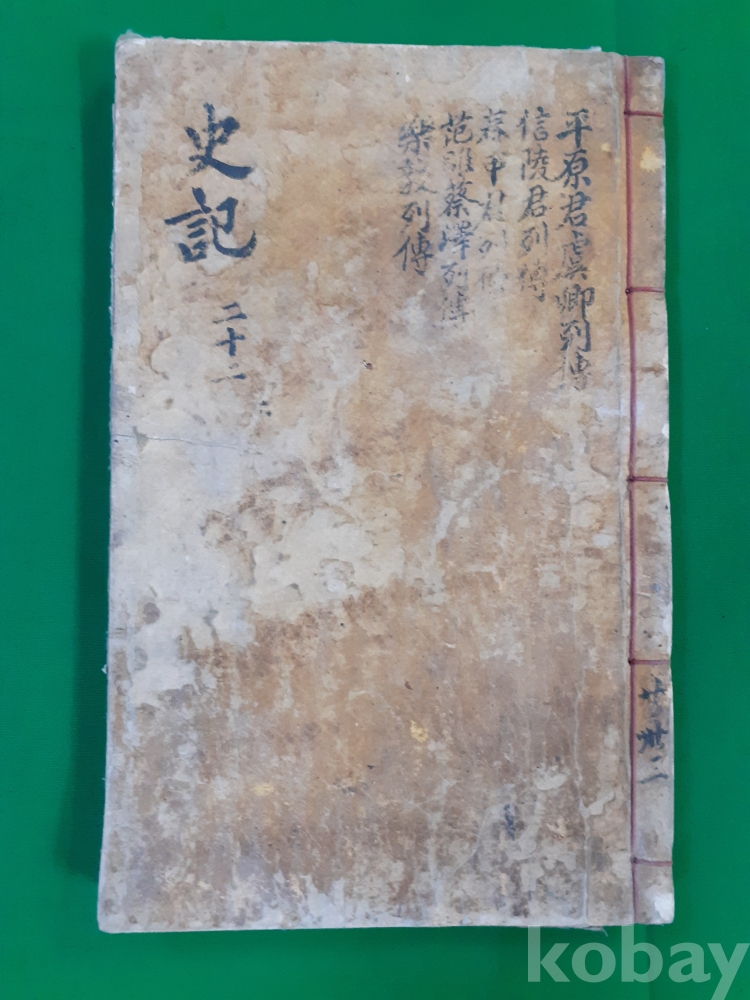 平原君虞卿列傳
信陵君列傳
春申君列傳
范雎蔡澤列傳
樂毅列傳
史記
二十二
共卅二
kobay